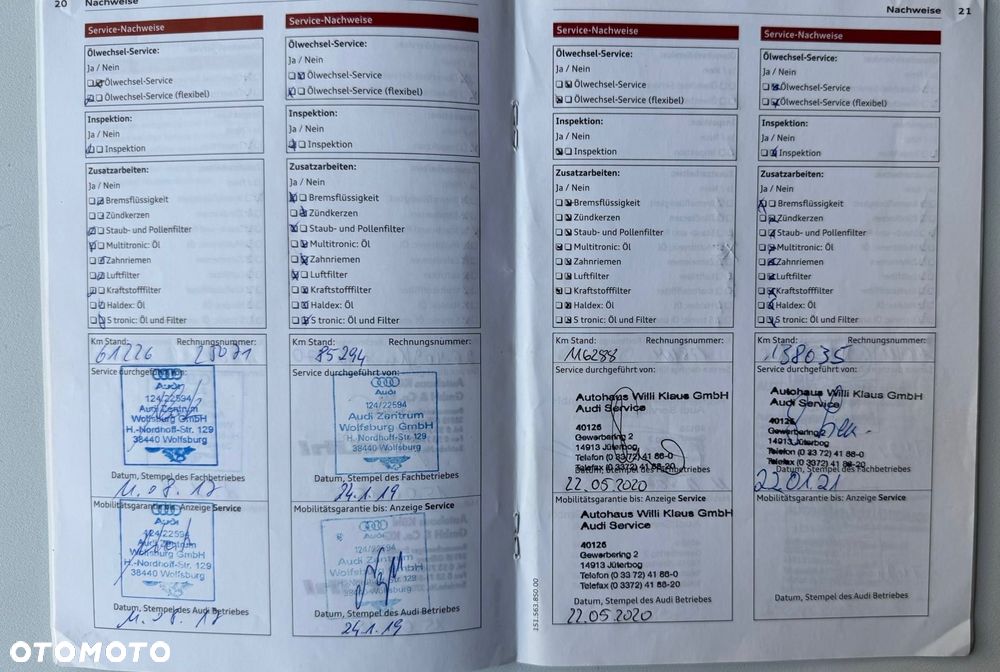 20
Nachweise
Service-Nachweise
Ölwechsel-Service:
Ja / Nein
Ölwechsel-Service
Ölwechsel-Service (flexibel)
Inspektion:
Ja / Nein
Inspektion
Zusatzarbeiten:
Ja / Nein
Bremsflüssigkeit
Zündkerzen
Staub- und Pollenfilter
Multitronic: Öl
Zahnriemen
Luftfilter
Kraftstofffilter
Haldex: Öl
S tronic: Öl und Filter
Km Stand: Rechnungsnummer:
61226
Service durchgeführt von:
Audi
124/22594
Audi Zentrum
Wolfsburg GmbH
H.-Nordhoff-Str. 129
38440 Wolfsburg
Datum, Stempel des Fachbetriebes
11.08.17
Mobilitätsgarantie bis: Anzeige Service
Audi
124/22594
Audi Zentrum
Wolfsburg GmbH
H.-Nordhoff-Str. 129
38440 Wolfsburg
Datum, Stempel des Audi Betriebes
11.08.17
Service-Nachweise
Ölwechsel-Service:
Ja / Nein
Ölwechsel-Service
Ölwechsel-Service (flexibel)
Inspektion:
Ja / Nein
Inspektion
Zusatzarbeiten:
Ja / Nein
Bremsflüssigkeit
Zündkerzen
Staub- und Pollenfilter
Multitronic: Öl
Zahnriemen
Luftfilter
Kraftstofffilter
Haldex: Öl
S tronic: Öl und Filter
Km Stand: Rechnungsnummer:
85294
Service durchgeführt von:
Audi
124/22594
Audi Zentrum
Wolfsburg GmbH
H. Nordhoff-Str. 129
38440 Wolfsburg
Datum, Stempel des Fachbetriebes
24.1.19
Mobilitätsgarantie bis: Anzeige Service
Audi
124/22594
Audi Zentrum
Wolfsburg GmbH
38440 Wolfsburg
Datum, Stempel des Audi Betriebes
24.1.19
Nachweise 21
Service-Nachweise
Ölwechsel-Service:
Ja / Nein
Ölwechsel-Service
Ölwechsel-Service (flexibel)
Inspektion:
Ja / Nein
Inspektion
Zusatzarbeiten:
Ja / Nein
Bremsflüssigkeit
Zündkerzen
Staub- und Pollenfilter
Multitronic: Öl
Zahnriemen
Luftfilter
Kraftstofffilter
Haldex: Öl
S tronic: Öl und Filter
Km Stand: Rechnungsnummer:
116288
Service durchgeführt von:
Autohaus Willi Klaus GmbH
Audi Service
40126
Gewerbering 2
14913 Jüterbog
Telefon (0 33 72) 41 88-0
Telefax (0 3372) 41 88-20
Datum, Stempel des Fachbetriebes
22.05.2020
Mobilitätsgarantie bis: Anzeige Service
Autohaus Willi Klaus GmbH
Audi Service
40126
Gewerbering 2
14913 Jüterbog
Telefon (0 33 72) 41 88-0
Telefax (0 3372) 41 88-20
Datum, Stempel des Audi Betriebes
22.05.2020
151.563.850.00
Service-Nachweise
Ölwechsel-Service:
Ja / Nein
Ölwechsel-Service
Ölwechsel-Service (flexibel)
Inspektion:
Ja / Nein
Inspektion
Zusatzarbeiten:
Ja / Nein
Bremsflüssigkeit
Zündkerzen
Staub- und Pollenfilter
Multitronic: Öl
Zahnriemen
Luftfilter
Kraftstofffilter
Haldex: Öl
S tronic: Öl und Filter
Km Stand: Rechnungsnummer:
138035
Service durchgeführt von:
Autohaus Willi Klaus GmbH
Audi Service
40126
Gewerbering 2
14913 Jüterbog
Telefon (0 3372) 41 88-0
Telefax (0 3372) 41 88-20
Datum, Stempel des Fachbetriebes
220121
Mobilitätsgarantie bis: Anzeige Service
Datum, Stempel des Audi Betriebes
OTOMOTO